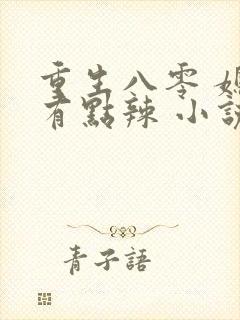 重生八零 媳
有點辣 小說
青子語